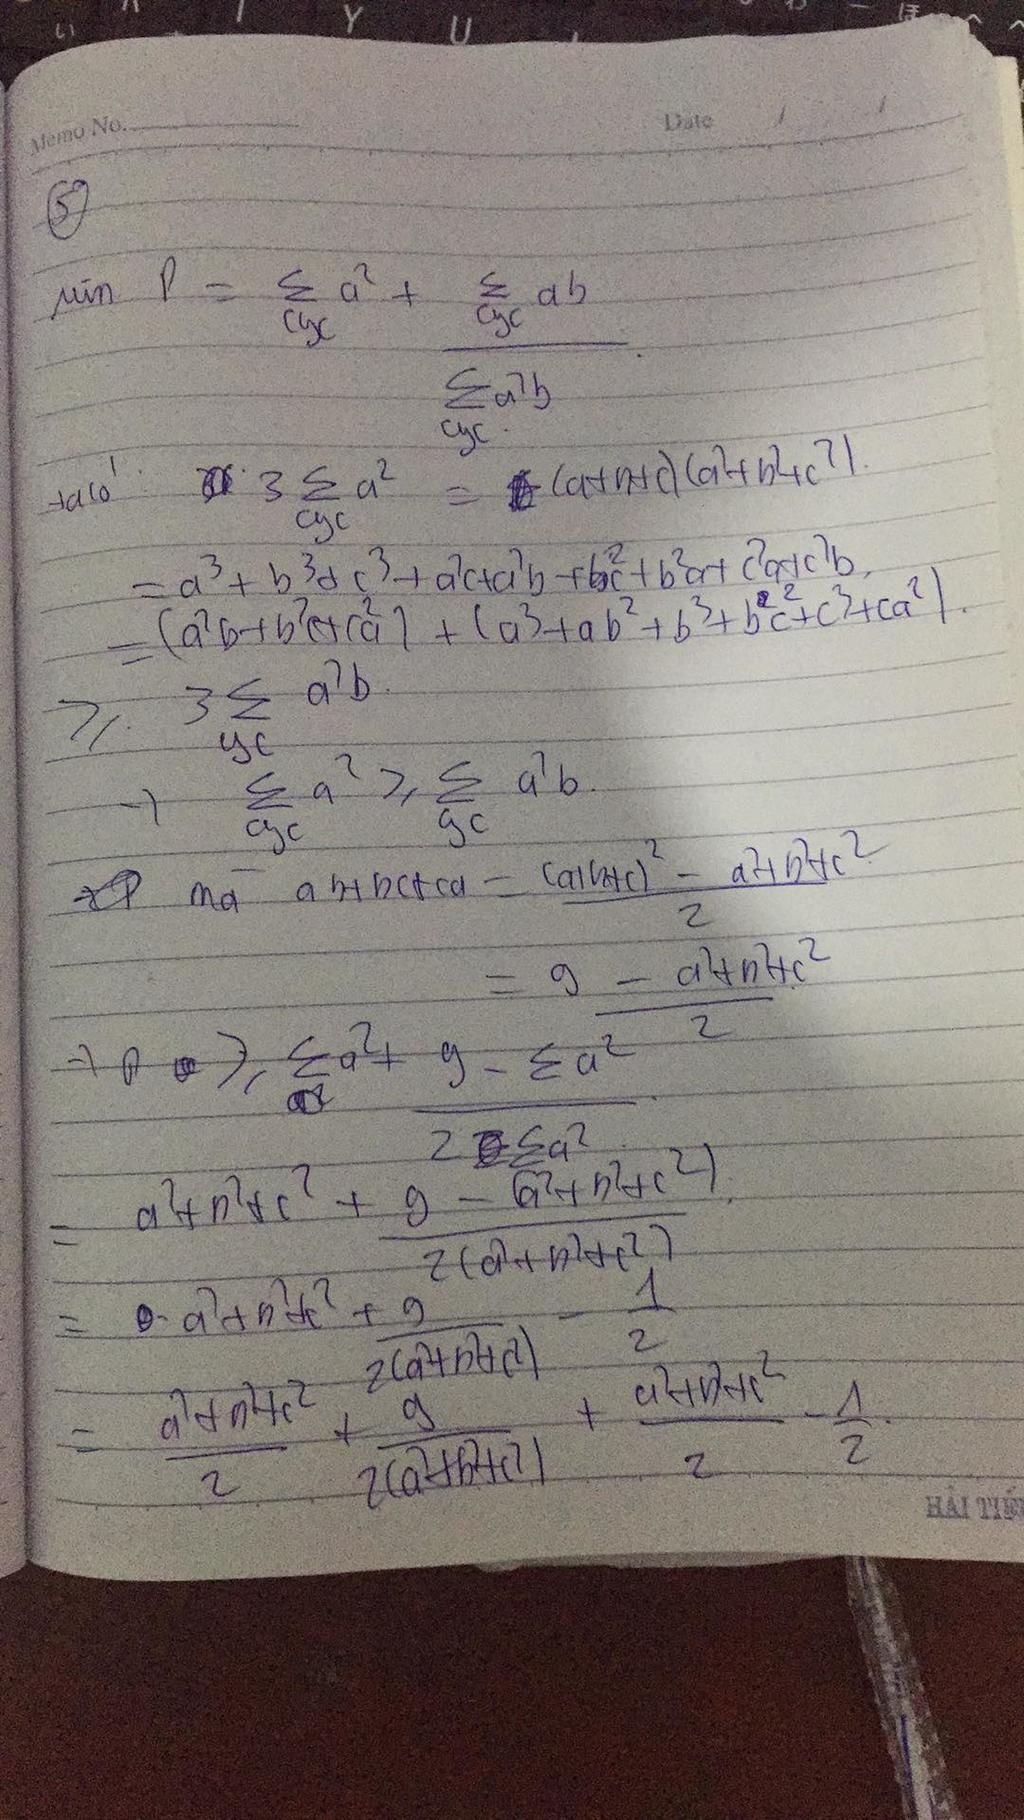 い Y U ほ へ へ
Memo No. Date / /
⑤
min P = Σ_cyc a² + (Σ_cyc ab)/(Σ_cyc a²b).
ta có: 3 Σ_cyc a² = (a+b+c)(a²+b²+c²).
= a³ + b³ + c³ + a²c + a²b + bc² + b²a + c²a + c²b.
= (a²b + b²c + c²a) + (a³ + ab² + b³ + b²c² + c³ + ca²).
≥ 3 Σ_cyc a²b.
→ Σ_cyc a² ≥ Σ_cyc a²b.
mà ab+bc+ca = ((a+b+c)² - a²+b²+c²)/2
= 9 - (a²+b²+c²)/2
→ P ≥ Σ a² + (9 - Σa²)/(2 Σa²).
= a²+b²+c² + (9 - (a²+b²+c²))/(2(a²+b²+c²)).
= a²+b²+c² + 9/(2(a²+b²+c²)) - 1/2
= (a²+b²+c²)/2 + 9/(2(a²+b²+c²)) + (a²+b²+c²)/2 - 1/2.